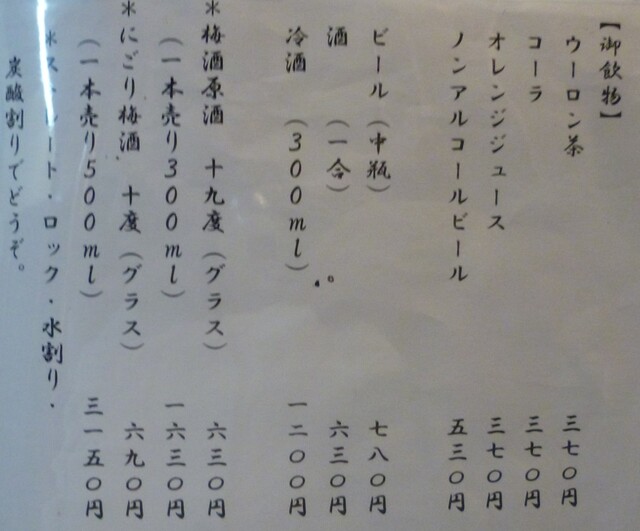 【御飲物】
ウーロン茶 三七〇円
コーラ 三七〇円
オレンジジュース 三七〇円
ノンアルコールビール 五三〇円
ビール (中瓶) 七八〇円
酒 (一合) 六三〇円
冷酒 (300ml) 一二〇〇円
*梅酒原酒 十九度(グラス) 六三〇円
(一本売り300ml) 一六三〇円
*にごり梅酒 十度(グラス) 六九〇円
(一本売り500ml) 三一五〇円
*ストレート・ロック・水割り・
炭酸割りでどうぞ。